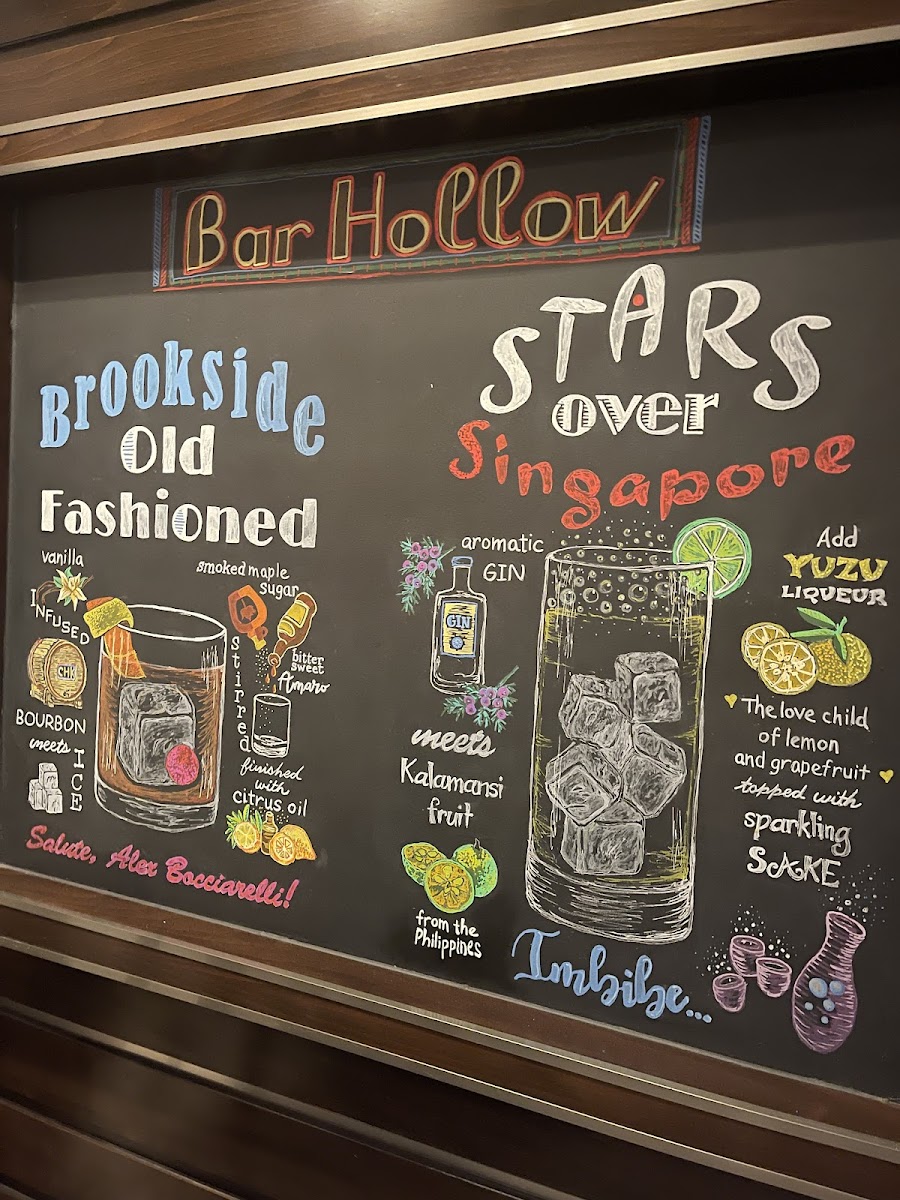 Bar Hollow
Brookside
Old
Fashioned
vanilla
INFUSED
CHK
BOURBON
meets
ICE
smoked maple
sugar
bitter
sweet
Amaro
Stirred
finished
with
citrus oil
Salute, Alex Bocciarelli!
STARS
over
Singapore
aromatic
GIN
GIN
meets
Kalamansi
fruit
from the
Philippines
Add
YUZU
LIQUEUR
The love child
of lemon
and grapefruit
topped with
sparkling
SAKE
Imbibe...